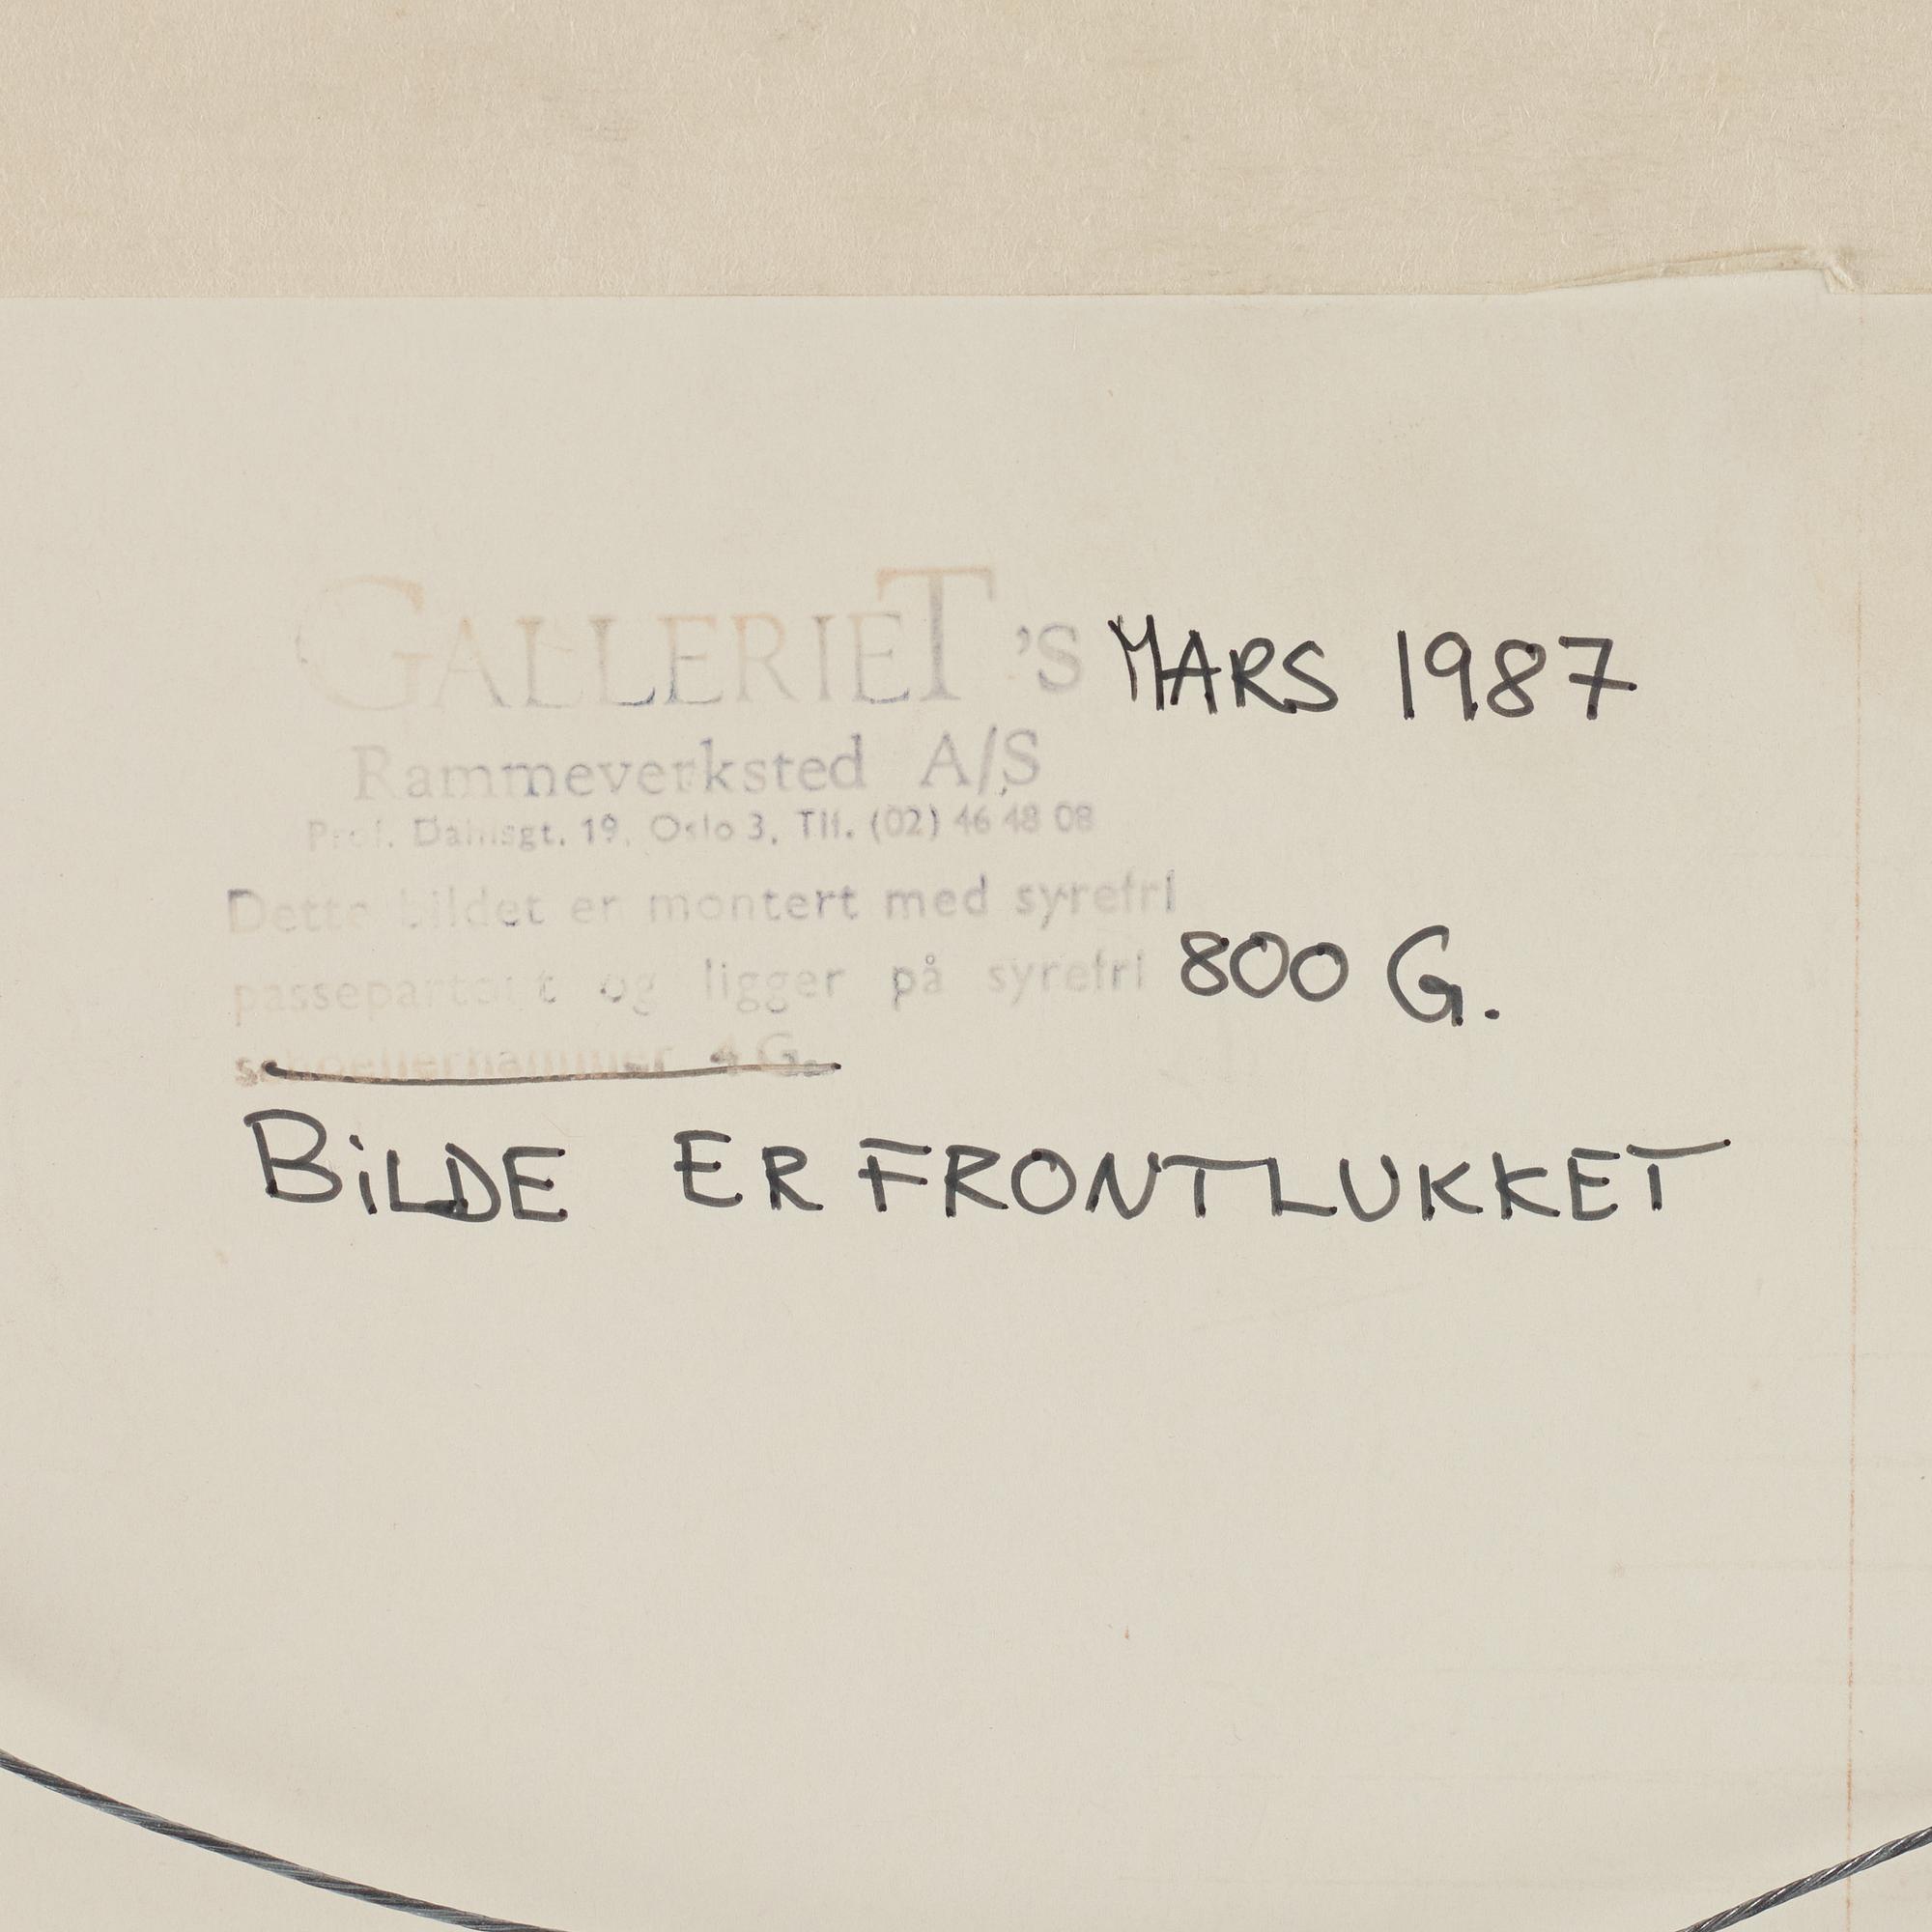 GALLERIET 'S MARS 1987
Rammeverksted A/S
Prof. Dahlsgt. 19, Oslo 3, Tlf. (02) 46 48 08
Dette bildet er montert med syrefri
passepartout og ligger på syrefri 800 G.
schoellerhammer 4 G.
BiLDE ER FRONTLUKKET